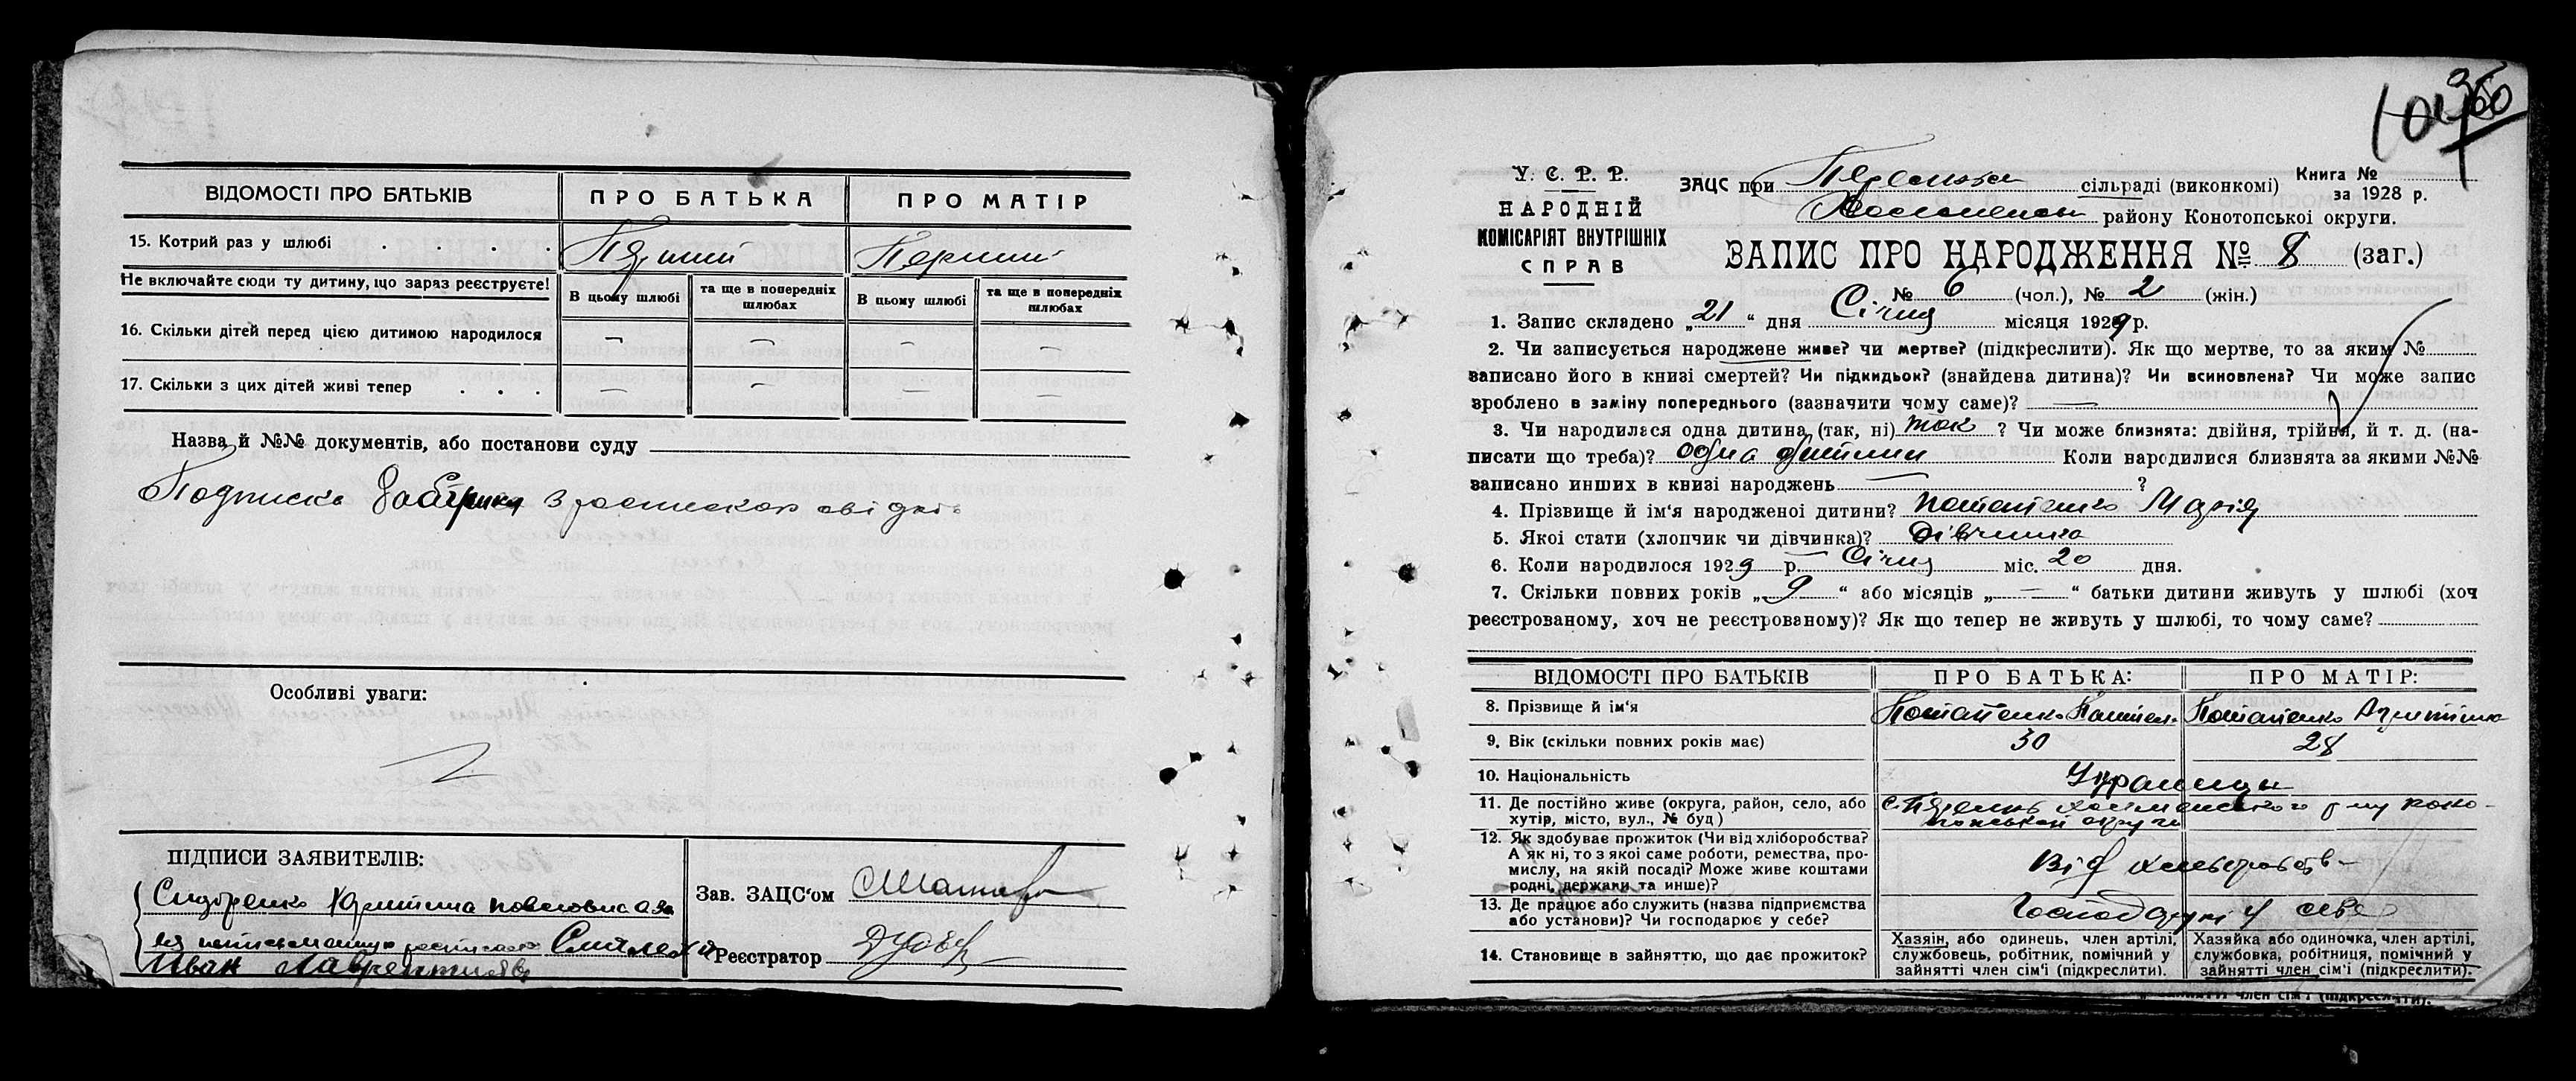 ВІДОМОСТІ ПРО БАТЬКІВ ПРО БАТЬКА ПРО МАТІР
15. Котрий раз у шлюбі . . . . Перший Перший
Не включайте сюди ту дитину, що зараз реєструєте! В цьому шлюбі та ще в попередніх шлюбах В цьому шлюбі та ще в попередніх шлюбах
16. Скільки дітей перед цією дитиною народилося — — — —
17. Скільки з цих дітей живі тепер . . . — — — —
Назва й №№ документів, або постанови суду
Подписка
Особливі уваги:
ПІДПИСИ ЗАЯВИТЕЛІВ:
Сидоренко Христина Павловна а за
Иван Лаврентиев
Зав. ЗАЦС‘ом
Реєстратор
360
У. С. Р. Р.
НАРОДНІЙ
КОМІСАРІЯТ ВНУТРІШНІХ
СПРАВ
ЗАЦС при сільраді (виконкомі)
Книга №
за 1928 р.
району Конотопської округи.
ЗАПИС ПРО НАРОДЖЕННЯ № 8 (заг.)
№ 6 (чол.), № 2 (жін.)
1. Запис складено „21“ дня Січня місяця 1929 р.
2. Чи записується народжене живе? чи мертве? (підкреслити). Як що мертве, то за яким №
записано його в книзі смертей? Чи підкидьок? (знайдена дитина)? Чи всиновлена? Чи може запис
зроблено в заміну попереднього (зазначити чому саме)? —
3. Чи народилася одна дитина (так, ні) так ? Чи може близнята: двійня, трійня, й т. д. (на-
писати що треба)? одна дитина Коли народилися близнята за якими №№
записано инших в книзі народжень — ?
4. Прізвище й ім‘я народженої дитини? Потапенко Марія
5. Якої стати (хлопчик чи дівчинка)? Дівчинка
6. Коли народилося 1929 р. Січня міс. 20 дня.
7. Скільки повних років „9“ або місяців „—“ батьки дитини живуть у шлюбі (хоч
реєстрованому, хоч не реєстрованому)? Як що тепер не живуть у шлюбі, то чому саме?
ВІДОМОСТІ ПРО БАТЬКІВ ПРО БАТЬКА: ПРО МАТІР:
8. Прізвище й ім‘я Потапенко Потапенко
9. Вік (скільки повних років має) 30 28
10. Національність Українці
11. Де постійно живе (округа, район, село, або
хутір, місто, вул., № буд) округи
12. Як здобуває прожиток (Чи від хліборобства?
А як ні, то з якої саме роботи, ремества, про-
мислу, на якій посаді? Може живе коштами
родні, держави та инше)? Від
13. Де працює або служить (назва підприємства
або установи)? Чи господарює у себе? у себе
14. Становище в зайняттю, що дає прожиток?
Хазяін, або одинець, член артілі,
службовець, робітник, помічний у
зайнятті член сім‘ї (підкреслити).
Хазяйка або одиночка, член артілі,
службовка, робітниця, помічний у
зайнятті член сім‘ї (підкреслити).